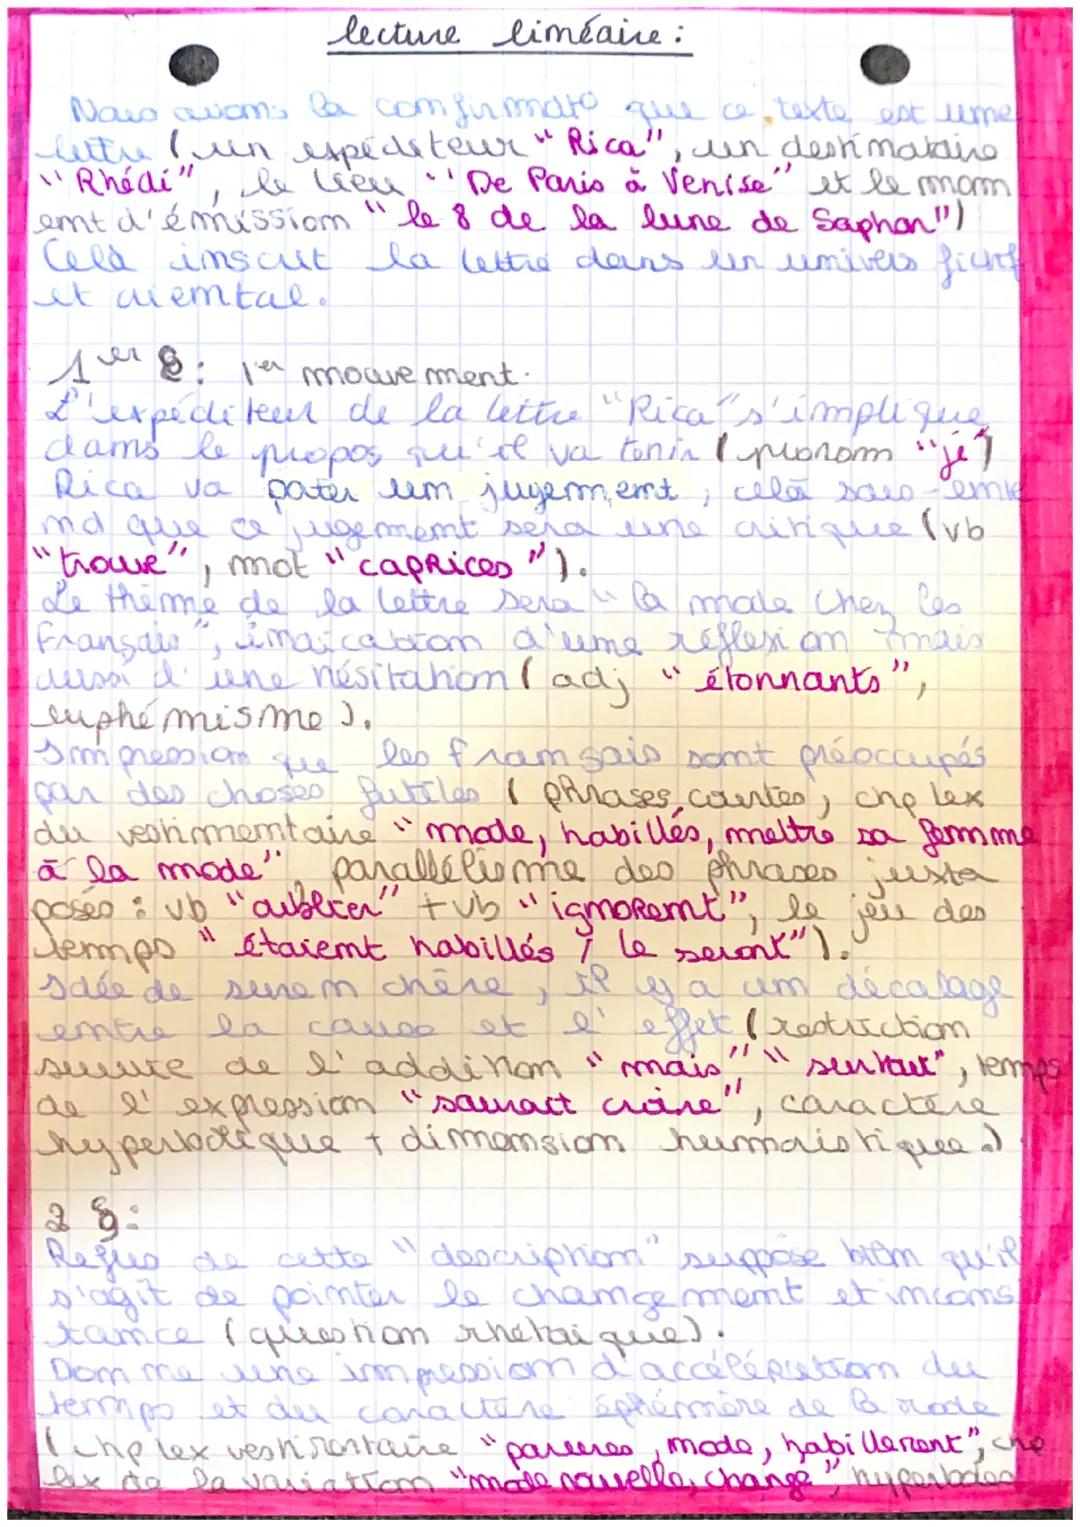 lecture linéaire :
Nous avons la confirmat° que ce texte est une
lettre (un expéditeur "Rica", un destinataire
"Rhédi", le lieu "De Paris à Venise" et le mom
ent d'émission "le 8 de la lune de Saphar")
Celà inscrit la lettre dans un univers fictif
et oriental.
1er § : 1er mouvement.
L'expéditeur de la lettre "Rica" s'implique
dans le propos qu'il va tenir (pronom "je")
Rica va poter um jugement, celà sous-ente
nd que ce jugement sera une critique (vb
"trouve", mot "caprices").
Le thème de la lettre sera "la mode chez les
Français", imdication d'une réflexion mais
aussi d'une hésitation (adj "étonnants",
euphémisme).
Impression que les français sont préoccupés
par des choses futiles (phrases courtes, chp lex
du vestimentaire "mode, habillés, mettre sa femme
à la mode", parallélisme des phrases juxta
posés : vb "oublier" + vb "ignorent", le jeu des
temps "étaient habillés / le seront").
Idée de surenchère, il y a um décalage
entre la cause et l'effet (restriction
suivie de l'addition "mais" "surtout", temps
de l'expression "saurait croire", caractère
hyperbolique + dimension humoristique.)
2 § :
Refus de cette "description" suppose bien qu'il
s'agit de pointer le changement et incons
tance (question rhétorique).
Donne une impression d'accélération du
temps et du caractère éphémère de la mode
(chp lex vestimentaire "parures, mode, habillerent", chp
lex de la variation "mode nouvelle, change", hyperboles